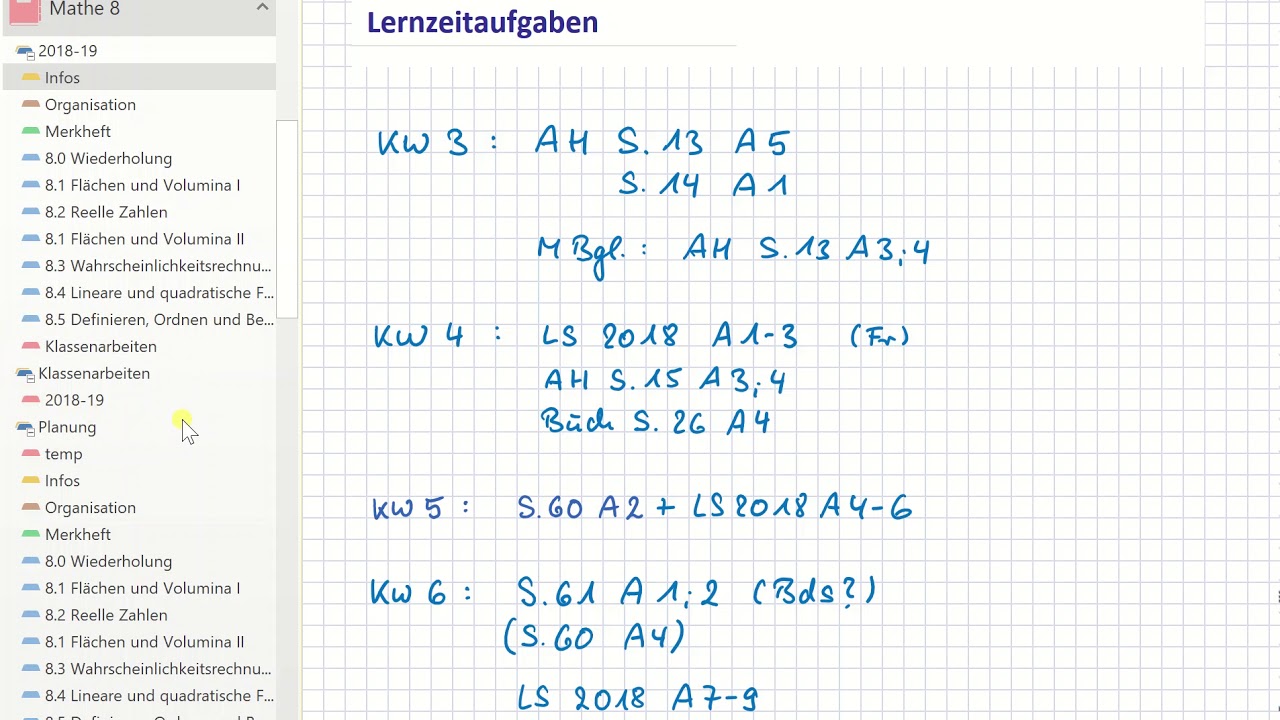 Mathe 8
2018-19
Infos
Organisation
Merkheft
8.0 Wiederholung
8.1 Flächen und Volumina I
8.2 Reelle Zahlen
8.1 Flächen und Volumina II
8.3 Wahrscheinlichkeitsrechnu...
8.4 Lineare und quadratische F...
8.5 Definieren, Ordnen und Be...
Klassenarbeiten
Klassenarbeiten
2018-19
Planung
temp
Infos
Organisation
Merkheft
8.0 Wiederholung
8.1 Flächen und Volumina I
8.2 Reelle Zahlen
8.1 Flächen und Volumina II
8.3 Wahrscheinlichkeitsrechnu...
8.4 Lineare und quadratische F...
Lernzeitaufgaben
KW 3 : AH S. 13 A 5
S. 14 A 1
M Bgl. : AH S. 13 A 3; 4
KW 4 : LS 2018 A 1-3 (Fr)
AH S. 15 A 3; 4
Buch S. 26 A 4
KW 5 : S. 60 A 2 + LS 2018 A 4-6
KW 6 : S. 61 A 1; 2 (Bds?)
(S. 60 A 4)
LS 2018 A 7-9